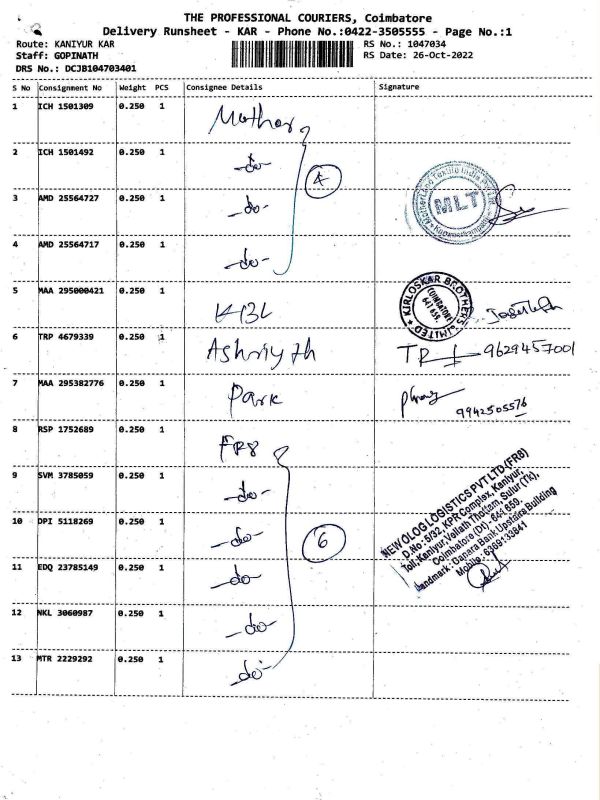 THE PROFESSIONAL COURIERS, Coimbatore
Delivery Runsheet - KAR - Phone No.:0422-3505555 - Page No.:1
Route: KANIYUR KAR
RS No.: 1047034
Staff: GOPINATH
RS Date: 26-Oct-2022
DRS No.: DCJB104703401
S No Consignment No Weight PCS Consignee Details Signature
1 ICH 1501309 0.250 1 Mother
2 ICH 1501492 0.250 1 -do-
4
3 AMD 25564727 0.250 1 -do-
MLT
4 AMD 25564717 0.250 1 -do-
5 MAA 295000421 0.250 1 KBL
KIRLOSKAR BROTHERS LIMITED
COIMBATORE
641 659.
6 TRP 4679339 0.250 1 Ashriyth
9629457001
7 MAA 295382776 0.250 1 Park
9942505576
8 RSP 1752689 0.250 1 FR8
9 SVM 3785059 0.250 1 -do-
10 DPI 5118269 0.250 1 -do-
6
11 EDQ 23785149 0.250 1 -do-
12 NKL 3060987 0.250 1 -do-
13 MTR 2229292 0.250 1 -do-
NEW OLOG LOGISTICS PVT LTD (FR8)
D.No.: 5/32, KPR Complex, Kaniyur,
Toll, Kaniyur, Vellath Thottam, Sulur (Tk),
Coimbatore (Dt) - 641 659.
Landmark : Canara Bank Upstairs Building